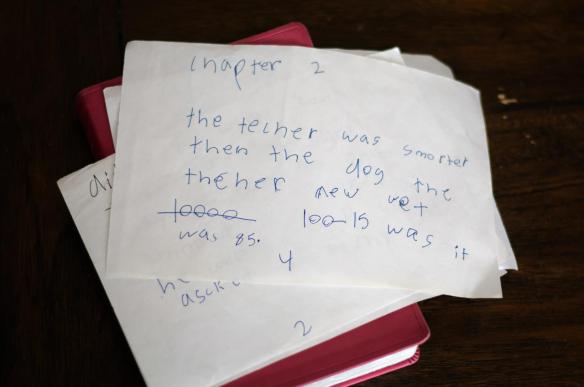 chapter 2
the techer was smorter
then the dog the
theher new wet
10000 100-15 was it
was 85.
4
di
asck
2